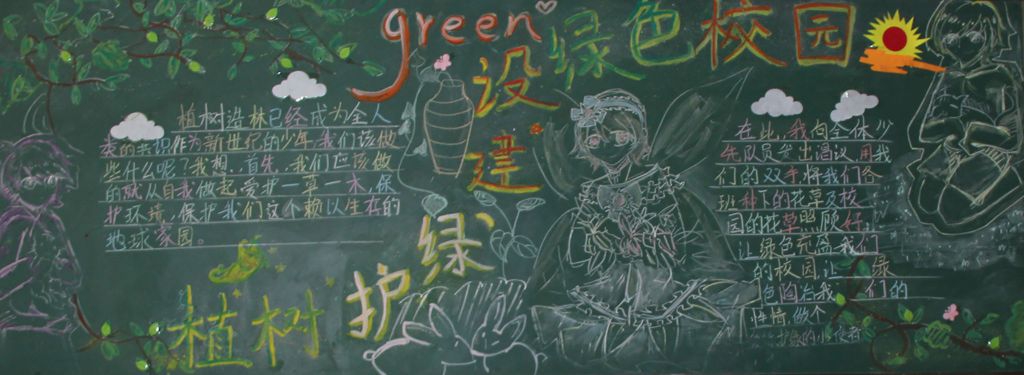 green
建设绿色校园
植树造林已经成为全人
类的共识作为新世纪的少年我们该做
些什么呢？我想，首先，我们应该做
的就从自我做起，爱护一草一木，保
护环境，保护我们这个赖以生存的
地球家园。
植树护绿
在此，我向全体少
先队员发出倡议，用我
们的双手将我们各
班种下的花草及校
园的花草照顾好，
让绿色充盈我们
的校园，让
绿
色陶冶我们的
性情，做个
护绿的小使者